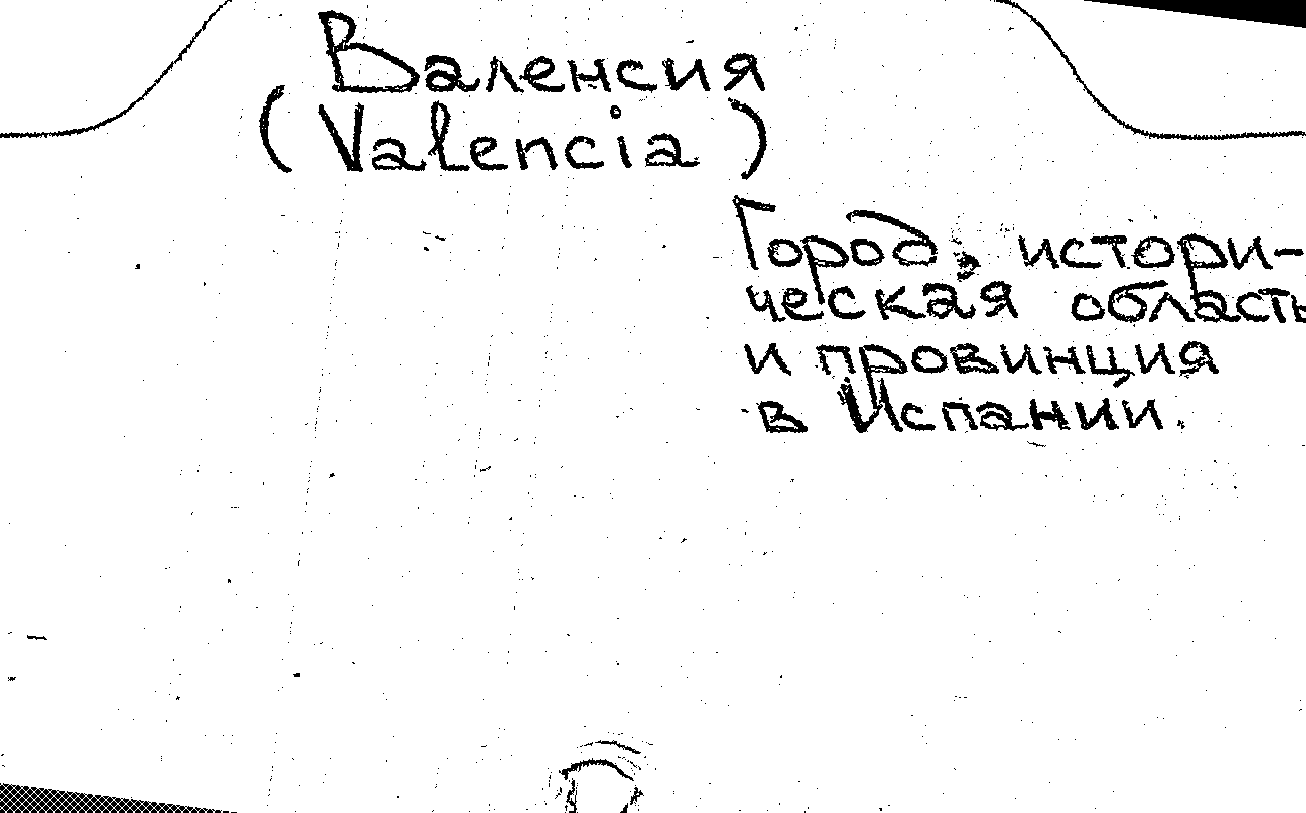 Валенсия
(Valencia)
Город, истори-
ческая область
и провинция
в Испании.